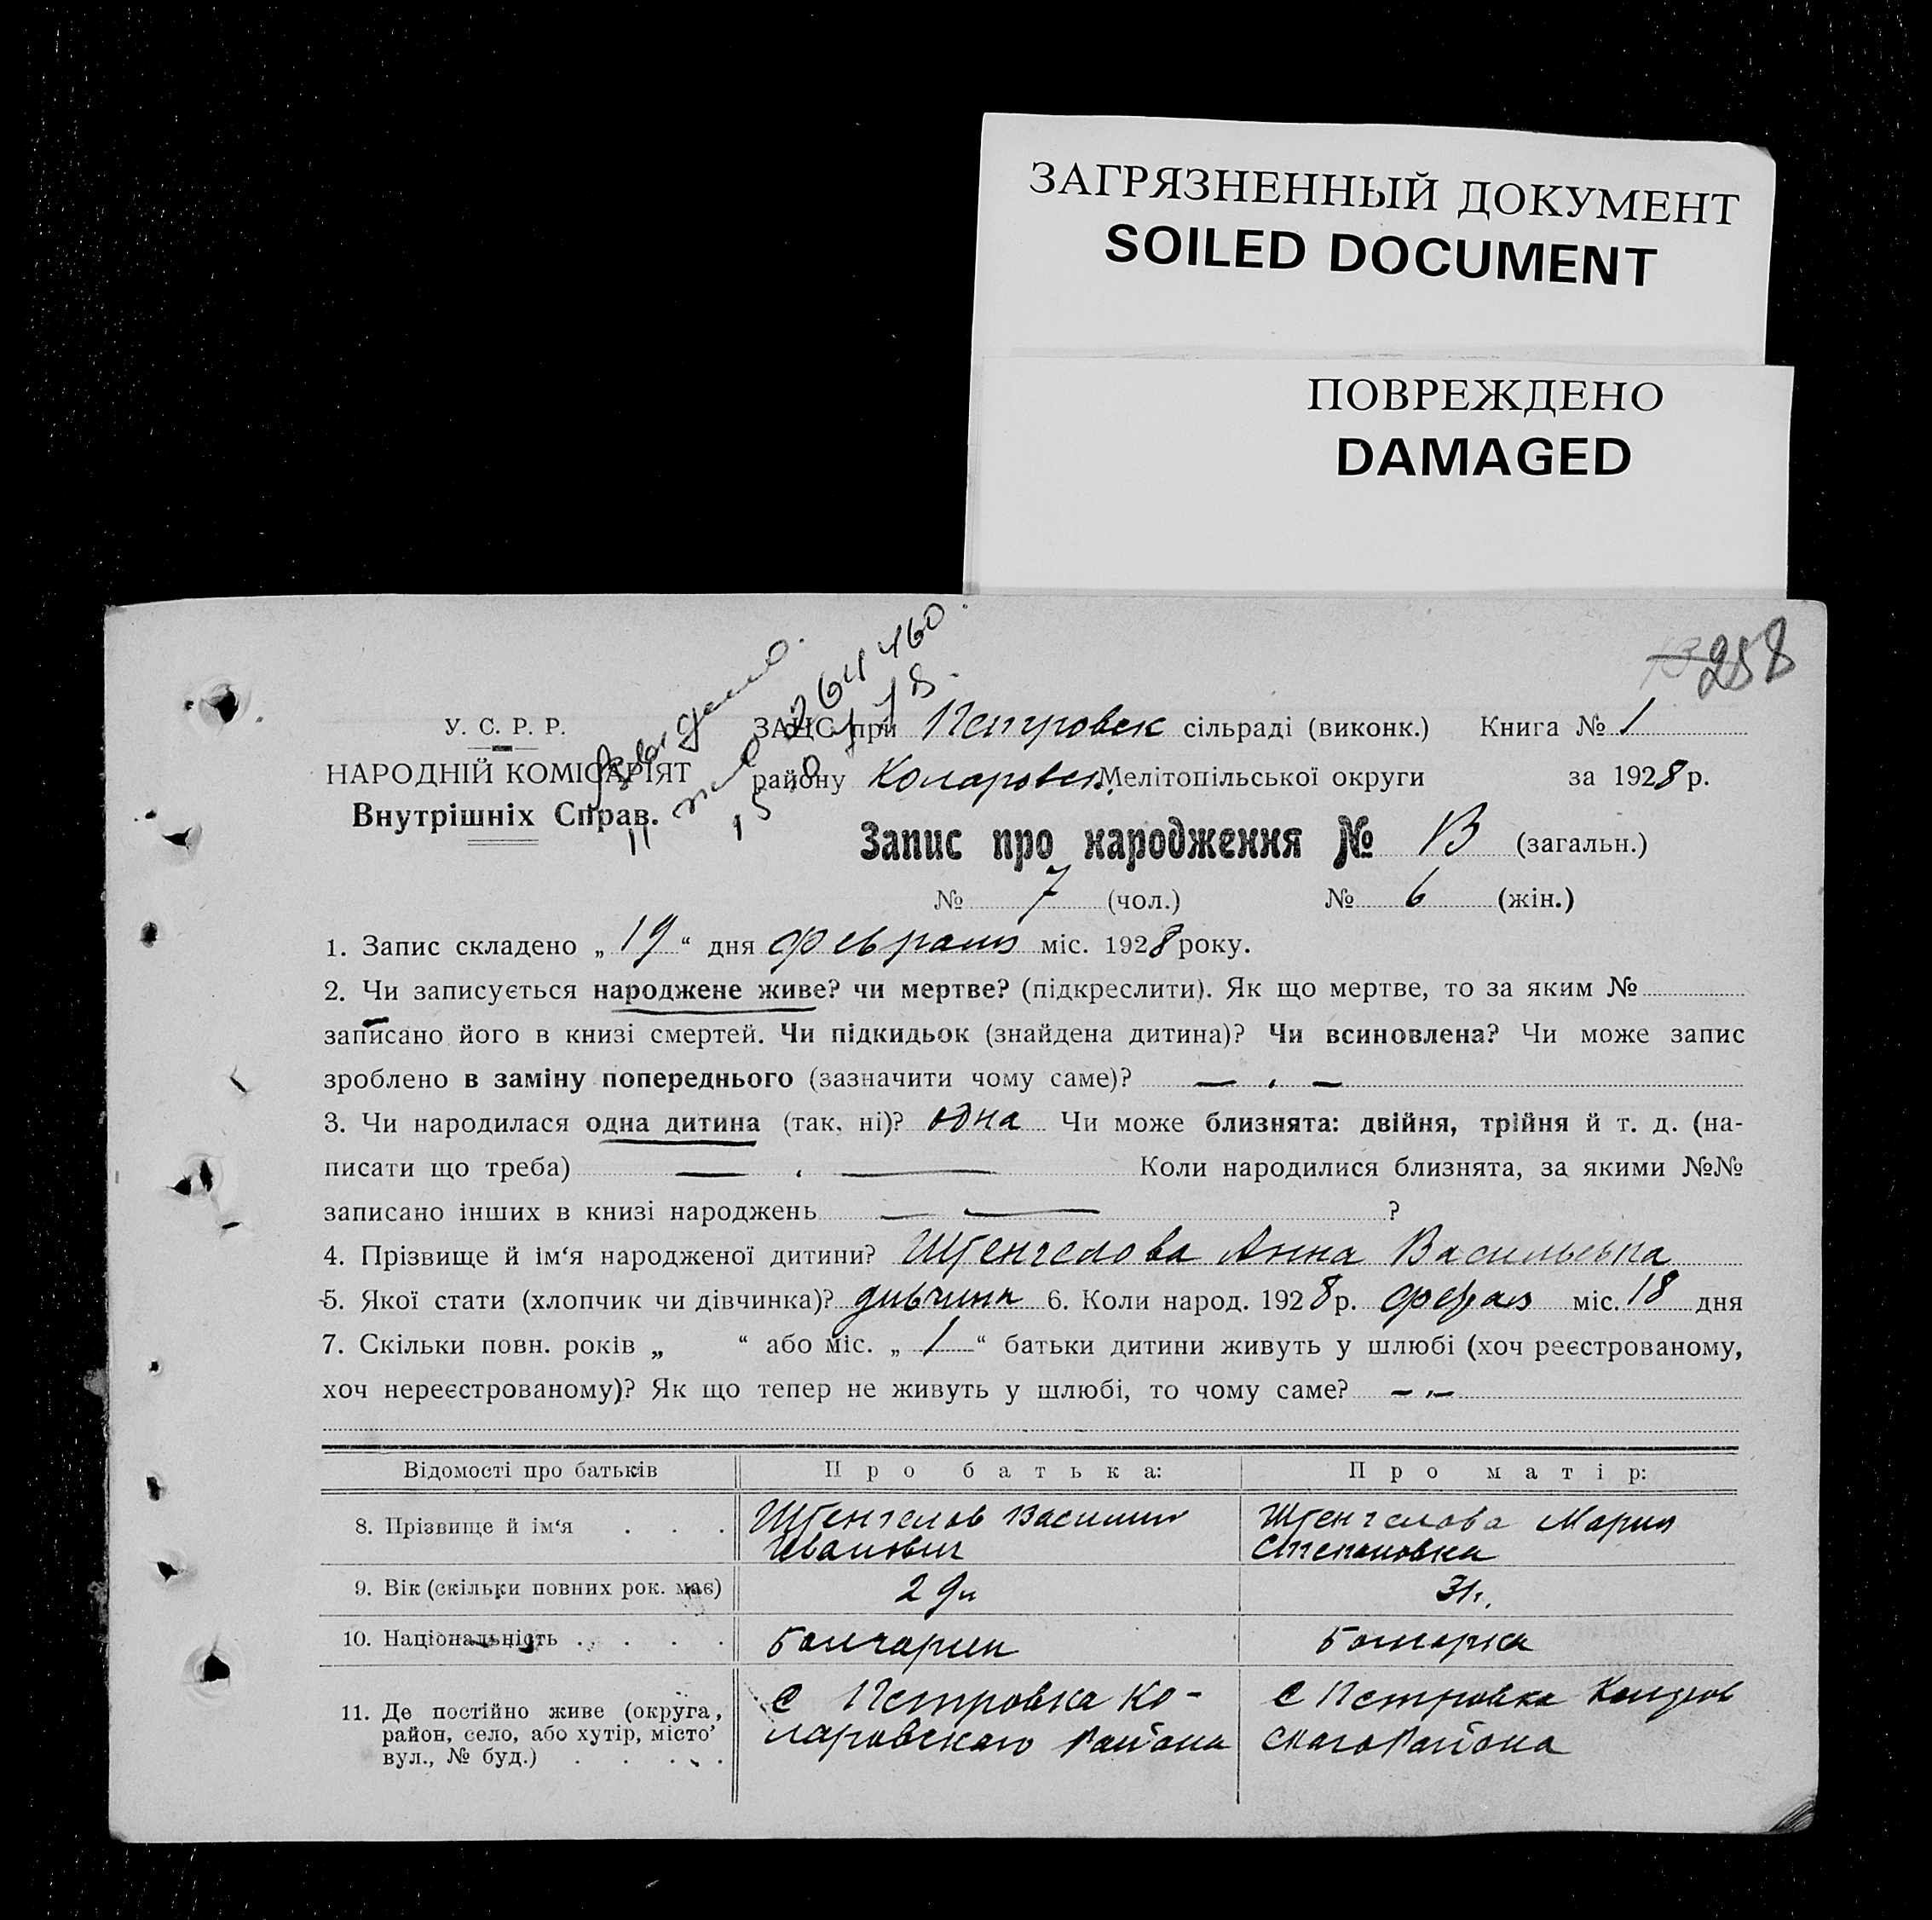 ЗАГРЯЗНЕННЫЙ ДОКУМЕНТ
SOILED DOCUMENT
ПОВРЕЖДЕНО
DAMAGED
258
У. С. Р. Р.
НАРОДНІЙ КОМІСАРІЯТ
Внутрішніх Справ.
ЗАЦС при Петровск сільраді (виконк.) Книга № 1
району Коларовск. Мелітопільської округи за 1928 р.
Запис про народження № 13 (загальн.)
№ 7 (чол.) № 6 (жін.)
1. Запис складено „ 19 “ дня февраля міс. 1928 року.
2. Чи записується народжене живе? чи мертве? (підкреслити). Як що мертве, то за яким №
записано його в книзі смертей. Чи підкидьок (знайдена дитина)? Чи всиновлена? Чи може запис
зроблено в заміну попереднього (зазначити чому саме)? — . —
3. Чи народилася одна дитина (так, ні)? одна Чи може близнята: двійня, трійня й т. д. (на-
писати що треба) — . — Коли народилися близнята, за якими №№
записано інших в книзі народжень — — ?
4. Прізвище й ім‘я народженої дитини? Штенгелова Анна Васильевна
5. Якої стати (хлопчик чи дівчинка)? дивчина 6. Коли народ. 1928 р. міс. 18 дня
7. Скільки повн. років „ “ або міс. „ 1 “ батьки дитини живуть у шлюбі (хоч реєстрованому,
хоч нереєстрованому)? Як що тепер не живуть у шлюбі, то чому саме? — . —
Відомості про батьків Про батька: Про матір:
8. Прізвище й ім‘я . . . Штенгелов Василий Штенгелова Мария
Иванович Степановна
9. Вік (скільки повних рок. має) 29л 31г.
10. Національність . . . . Болгарин Болгарка
11. Де постійно живе (округа, С Петровка Ко- С Петровка Коларов
район, село, або хутір, місто’ ларовского Района ского Района
вул., № буд.) . . . .